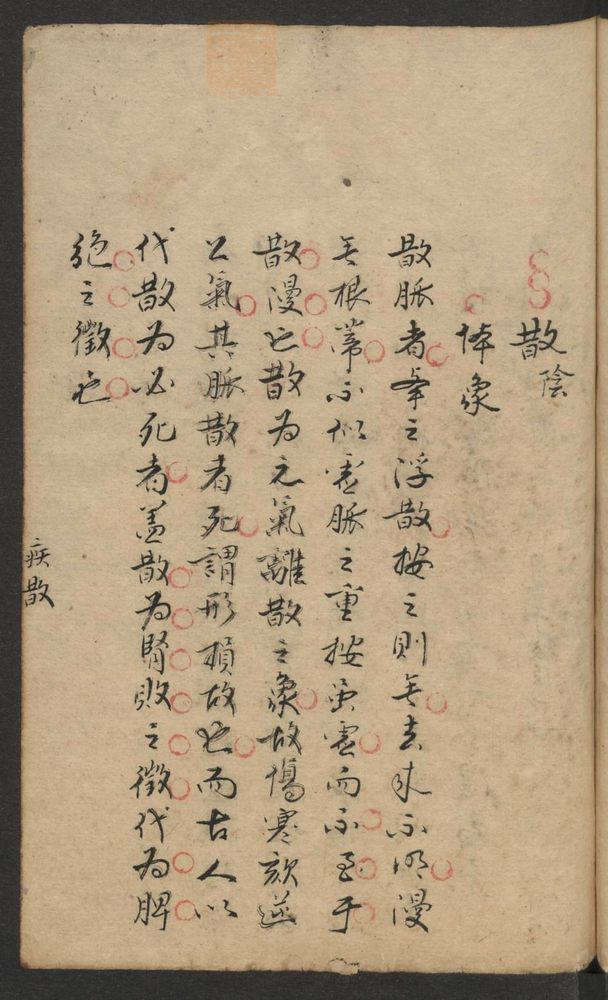 散陰
体象
散脈者举之浮散按之則无去来不明漫
无根蒂不似虚脈之重按虽虚而不至于
散漫也散为元氣離散之象故傷寒欬逆
上氣其脈散者死謂形損故也而古人以
代散为必死者盖散为腎敗之徵代为脾
絶之徵也
疾散